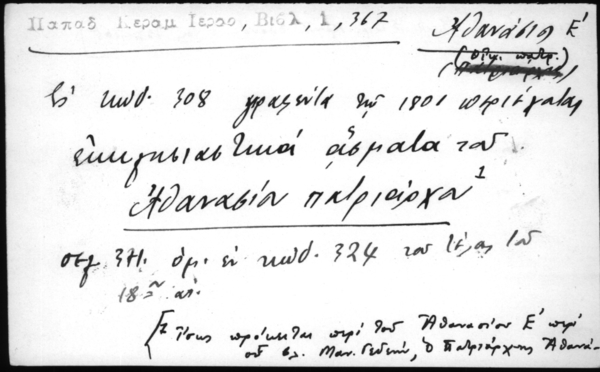 Παπαδ Κεραμ Ιεροσ, Βιβλ, 1, 367
Ἀθανάσιος Εʹ
(Οἰκ. πατρ.)
Ἐν κώδ. 308 γραφέντα τῷ 1801 περιέχεται
ἐκκλησιαστικά ᾄσματα τοῦ
Ἀθανασίου πατριάρχου 1
σελ. 371. ὁμ. ἐν κώδ. 324 τοῦ τέλους τοῦ
18ου αἰ.
[1 Ἴσως πρόκειται περί τοῦ Ἀθανασίου Εʹ περί
οὗ βλ. Μαν. Γεδεών, Ὁ Πατριάρχης Ἀθανά-